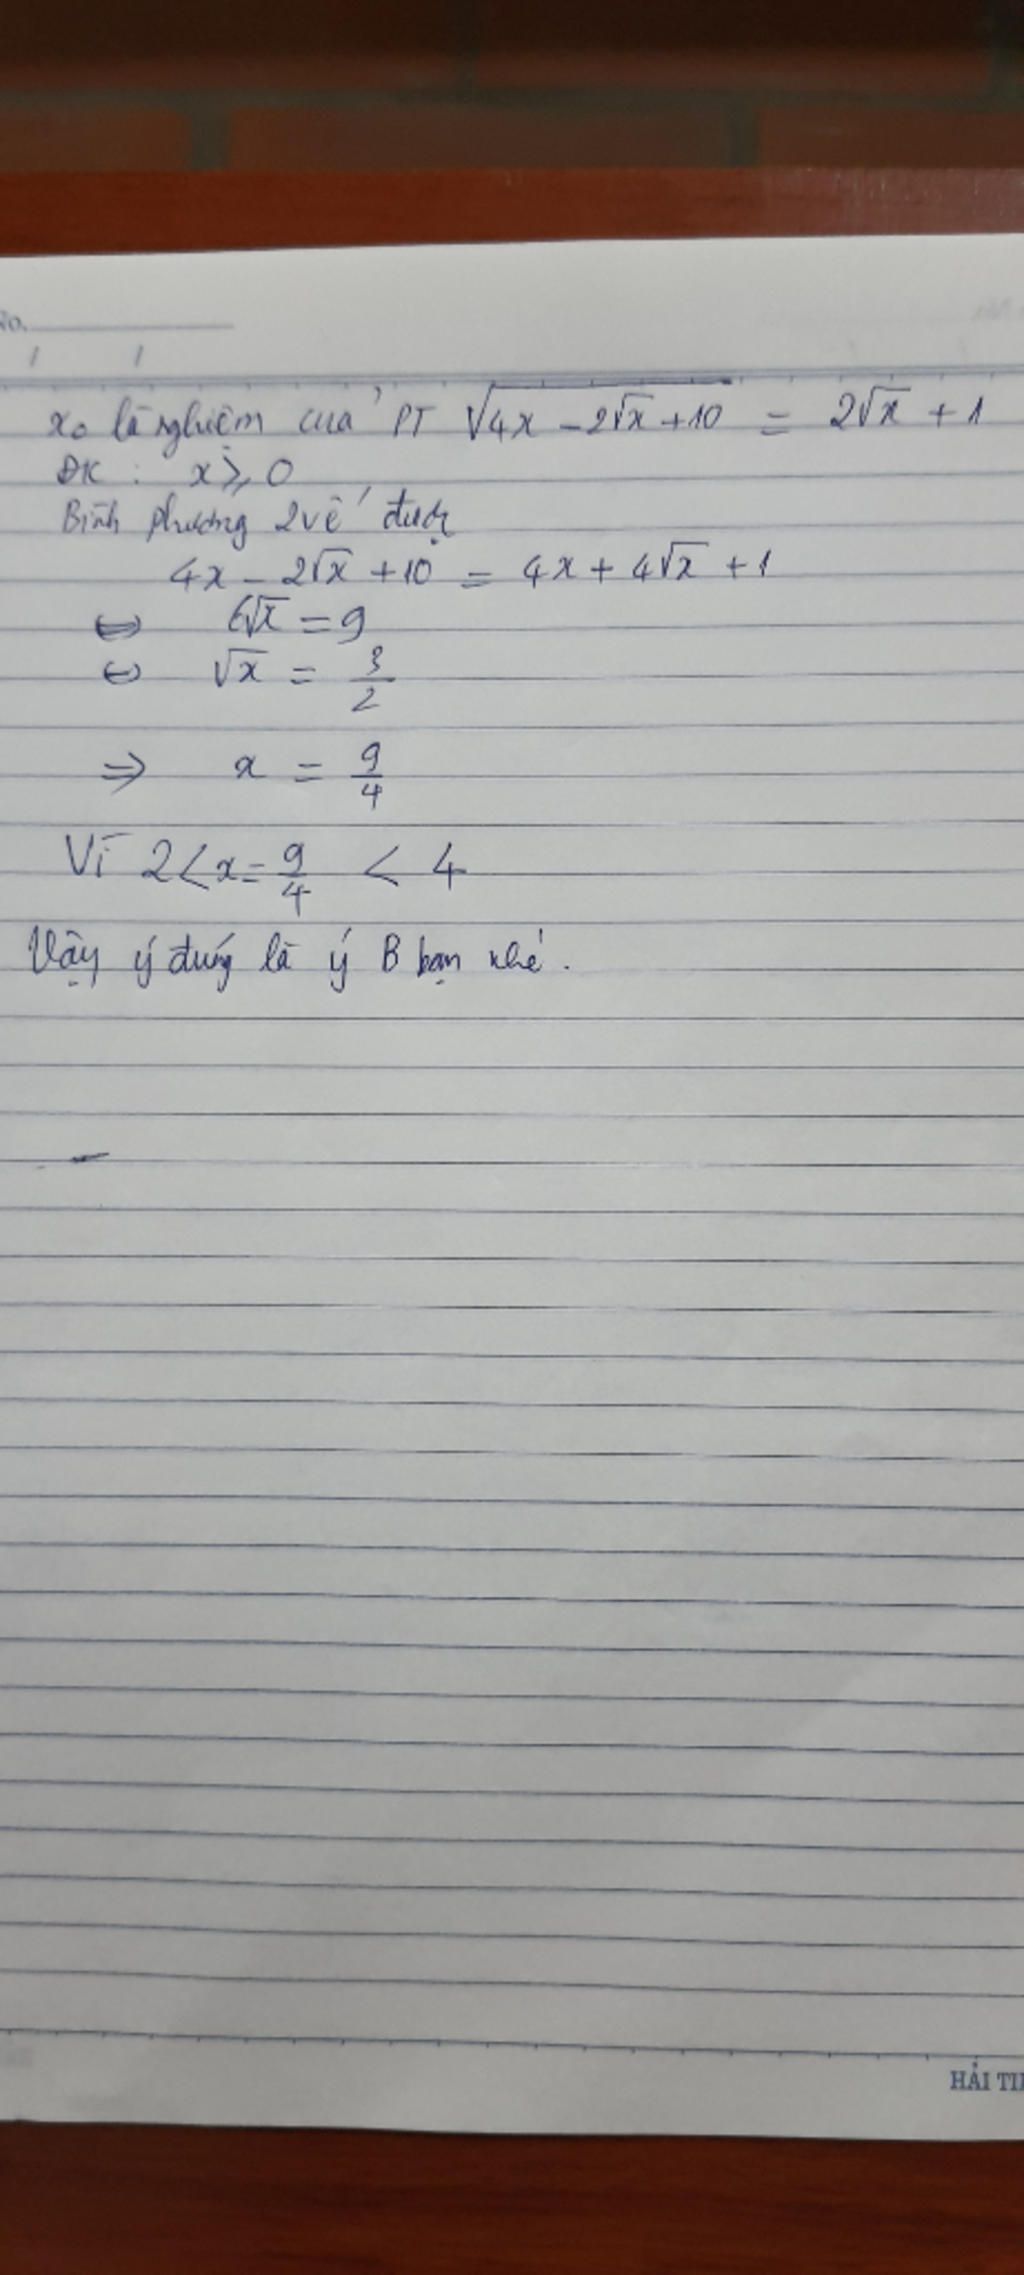 No.
x₀ là nghiệm của PT √(4x - 2√x + 10) = 2√x + 1
ĐK : x ≥ 0
Bình phương 2 vế được
4x - 2√x + 10 = 4x + 4√x + 1
⇔ 6√x = 9
⇔ √x = 3/2
⇒ x = 9/4
Vì 2 < x = 9/4 < 4
Vậy ý đúng là ý B bạn nhé.
HẢI TI